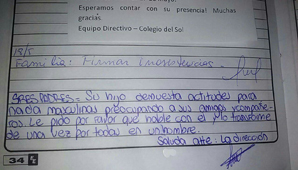 Esperamos contar con su presencia! Muchas
gracias.
Equipo Directivo - Colegio del Sol
18/5
Familia: Firmar
SRES PADRES - Su hijo demuestra actitudes para
nada masculinas preocupando a sus amigos y compañe-
ros. Le pido por favor que hable con el y lo transforme
de una vez por todas en un hombre.
Saluda atte. La dirección
34